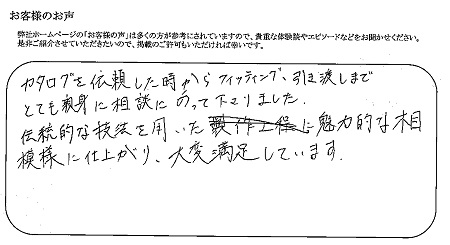 お客様のお声
弊社ホームページの「お客様の声」は多くの方が参考にされていますので、貴重な体験談やエピソードなどをお聞かせください。
是非ご紹介させていただきたいので、掲載のご許可もいただければ幸いです。
カタログを依頼した時からフィッティング、引き渡しまで
とても親身に相談にのって下さりました。
伝統的な技法を用いた製作工程に魅力的な木目
模様に仕上がり、大変満足しています。